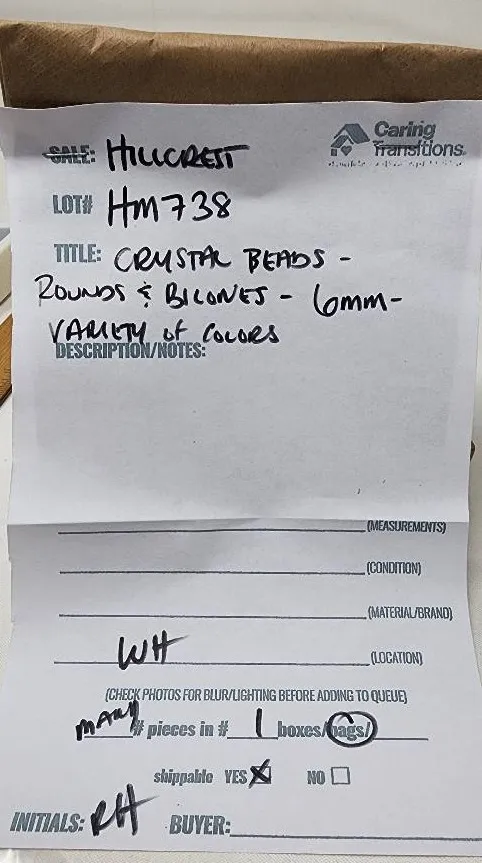 Caring
Transitions
SALE: HILLCREST
LOT# HM738
TITLE: CRYSTAL BEADS -
ROUNDS & BICONES - 6mm -
VARIETY of COLORS
DESCRIPTION/NOTES:
(MEASUREMENTS)
(CONDITION)
(MATERIAL/BRAND)
WH (LOCATION)
(CHECK PHOTOS FOR BLUR/LIGHTING BEFORE ADDING TO QUEUE)
MANY # pieces in # 1 boxes/bags/
shippable YES NO
INITIALS: RH BUYER: